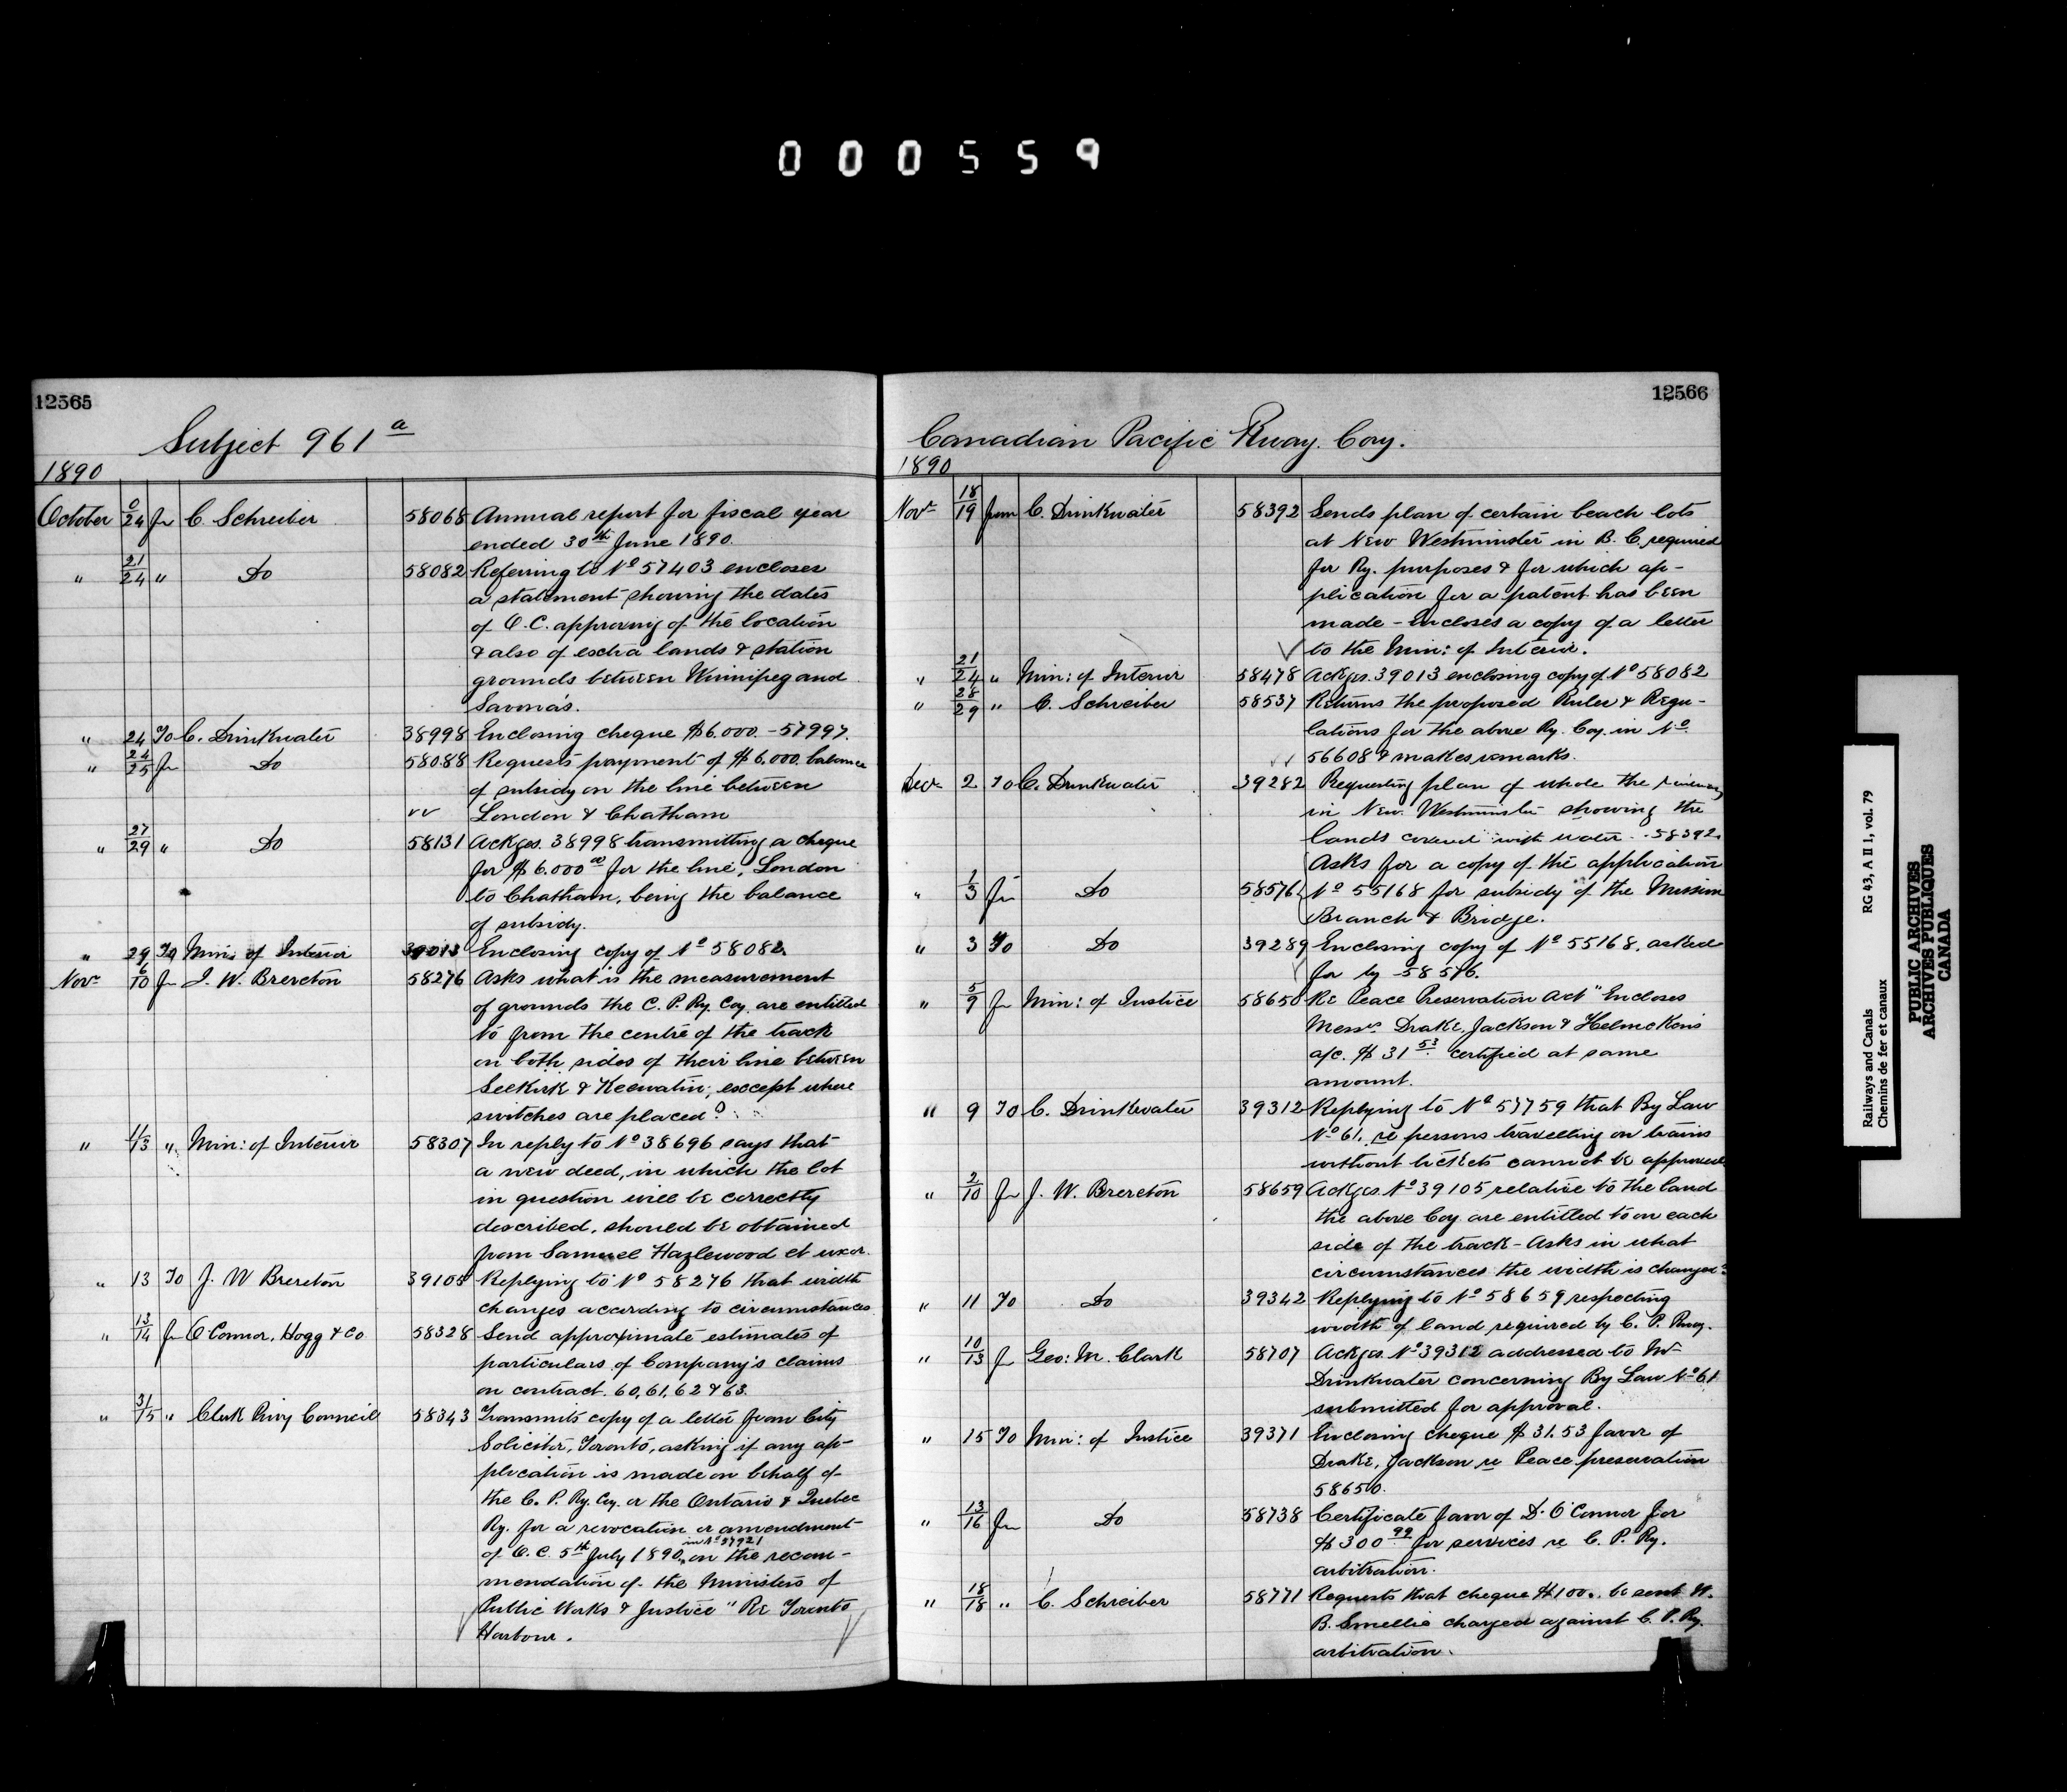 000559
12565
Subject 961 a
1890
October 0/24 fr C. Schreiber 58068 Annual report for fiscal year
ended 30th June 1890.
" 21/24 " Do 58082 Referring to No 57403 encloses
a statement showing the dates
of O.C. approving of the location
& also of extra lands & station
grounds between Winnipeg and
Savona's.
" 24 To C. Drinkwater 38998 Enclosing cheque $6,000 - 57997.
" 24/25 fr Do 58088 Requests payment of $6,000 balance
of subsidy on the line between
London & Chatham
" 27/29 " Do 58131 Ackges. 38998 transmitting a cheque
for $6,000 00 for the line, London
to Chatham, being the balance
of subsidy.
" 29 To Min: of Interior 39013 Enclosing copy of No 58082.
Novr 6/10 fr J. W. Brereton 58276 Asks what is the measurement
of grounds the C. P. Ry. Coy. are entitled
to from the centre of the track
on both sides of their line between
Selkirk & Keewatin; except where
switches are placed?
" 11/13 " Min: of Interior 58307 In reply to No 38696 says that
a new deed, in which the lot
in question will be correctly
described, should be obtained
from Samuel Hazlewood et uxor.
" 13 To J. W Brereton 39105 Replying to No 58276 that width
changes according to circumstances
" 13/14 fr O'Connor, Hogg & Co 58328 Send approximate estimates of
particulars of Company's claims
on contract. 60, 61, 62 & 63.
" 31/15 " Clerk Privy Council 58343 Transmits copy of a letter from City
Solicitor, Toronto, asking if any ap-
plication is made on behalf of
the C. P. Ry. Coy. or the Ontario & Quebec
Ry. for a revocation or amendment
in No 57921
of O.C. 5th July 1890, on the recom-
mendation of the Ministers of
Public Works & Justice "Re Toronto
Harbour.
12566
Canadian Pacific Rway. Coy.
1890
Novr 18/19 from C. Drinkwater 58392 Sends plan of certain beach lots
at New Westminster in B. C. required
for Ry. purposes & for which ap-
plication for a patent has been
made - Encloses a copy of a letter
to the Min: of Interior.
" 21/24 " Min: of Interior 58478 Ackges. 39013 enclosing copy of No 58082
" 28/29 " C. Schreiber 58537 Returns the proposed Rules & Regu-
lations for the above Ry. Coy. in No
56608 & makes remarks.
Decr 2 To C. Drinkwater 39282 Requesting plan of whole the
in New Westminster showing the
lands covered with water. - 58392.
Asks for a copy of the application
" 1/3 fr Do 58576 No 55168 for subsidy of the Mission
Branch & Bridge.
" 3 To Do 39289 Enclosing copy of No 55168, asked
for by 58576.
" 5/9 fr Min: of Justice 58650 Re Peace Preservation Act" Encloses
Messrs. Drake, Jackson & Helmcken's
a/c. $31 53 certified at same
amount.
" 9 To C. Drinkwater 39312 Replying to No 57759 that By Law
No 61, re persons travelling on trains
without tickets cannot be approved
" 2/10 fr J. W. Brereton 58659 Ackges No 39105 relative to the land
the above Coy are entitled to on each
side of the track - Asks in what
circumstances the width is changed?
" 11 To Do 39342 Replying to No 58659 respecting
width of land required by C. P. Rway.
" 10/13 fr Geo: M. Clark 58707 Ackges No 39312 addressed to Mr
Drinkwater concerning By Law No 61
submitted for approval.
" 15 To Min: of Justice 39371 Enclosing cheque $31.53 favor of
Drake, Jackson re Peace preservation
58650.
" 13/16 fr Do 58738 Certificate favor of D. O'Connor for
$300 99 for services re C. P. Ry.
arbitration.
" 18/18 " C. Schreiber 58771 Requests that cheque $100.. be sent W.
B. Smellie charged against C. P. Ry.
arbitration.
Railways and Canals RG 43, A II 1, vol. 79
Chemins de fer et canaux
PUBLIC ARCHIVES
ARCHIVES PUBLIQUES
CANADA